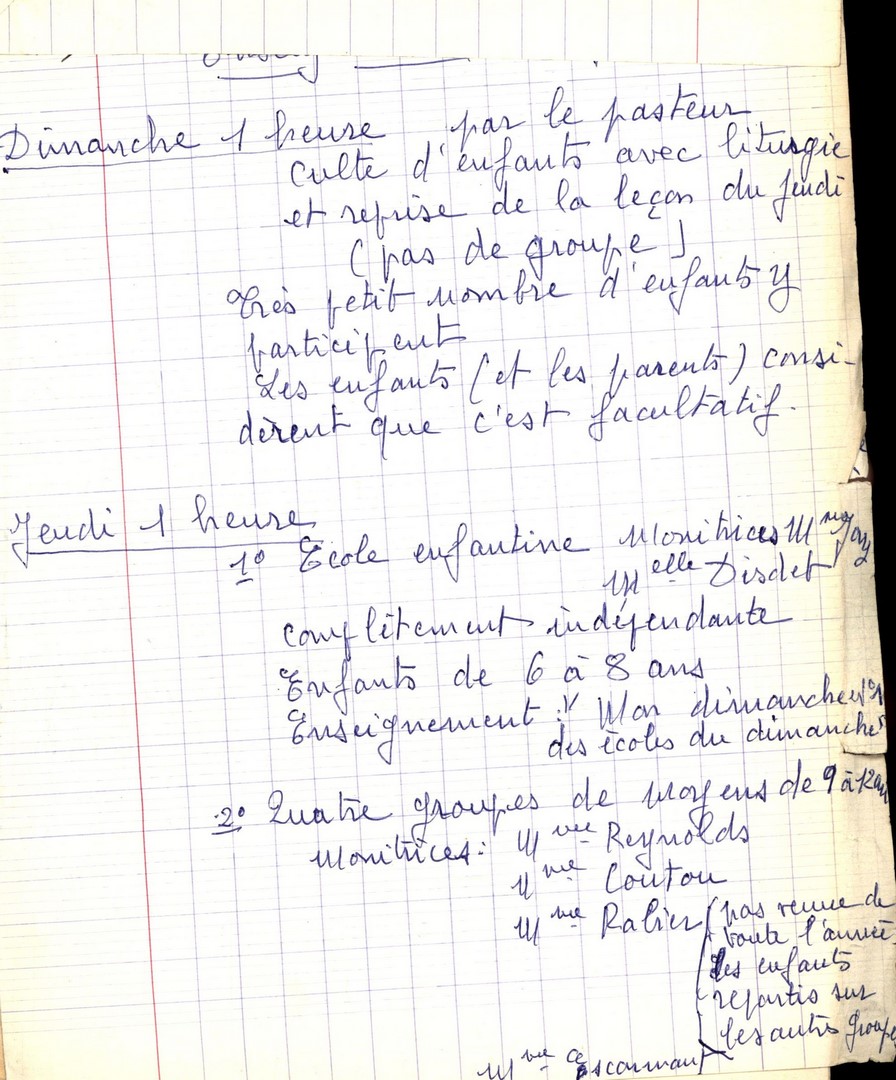 Dimanche 1 heure par le pasteur
Culte d'enfants avec liturgie
et reprise de la leçon du jeudi
(pas de groupe)
Très petit nombre d'enfants y
participent
Les enfants (et les parents) consi-
dèrent que c'est facultatif.
Jeudi 1 heure
1° École enfantine Monitrices Mme
Melle Disdet
complètement indépendante
Enfants de 6 à 8 ans
Enseignement : "Mon dimanche"
des écoles du dimanche
2° Quatre groupes de moyens de 9 à 12 an
Monitrices: Mme Reynolds
Mme Couton
Mme Ralier (pas venue de
toute l'année
les enfants
repartis sur
les autres groupe
Mme